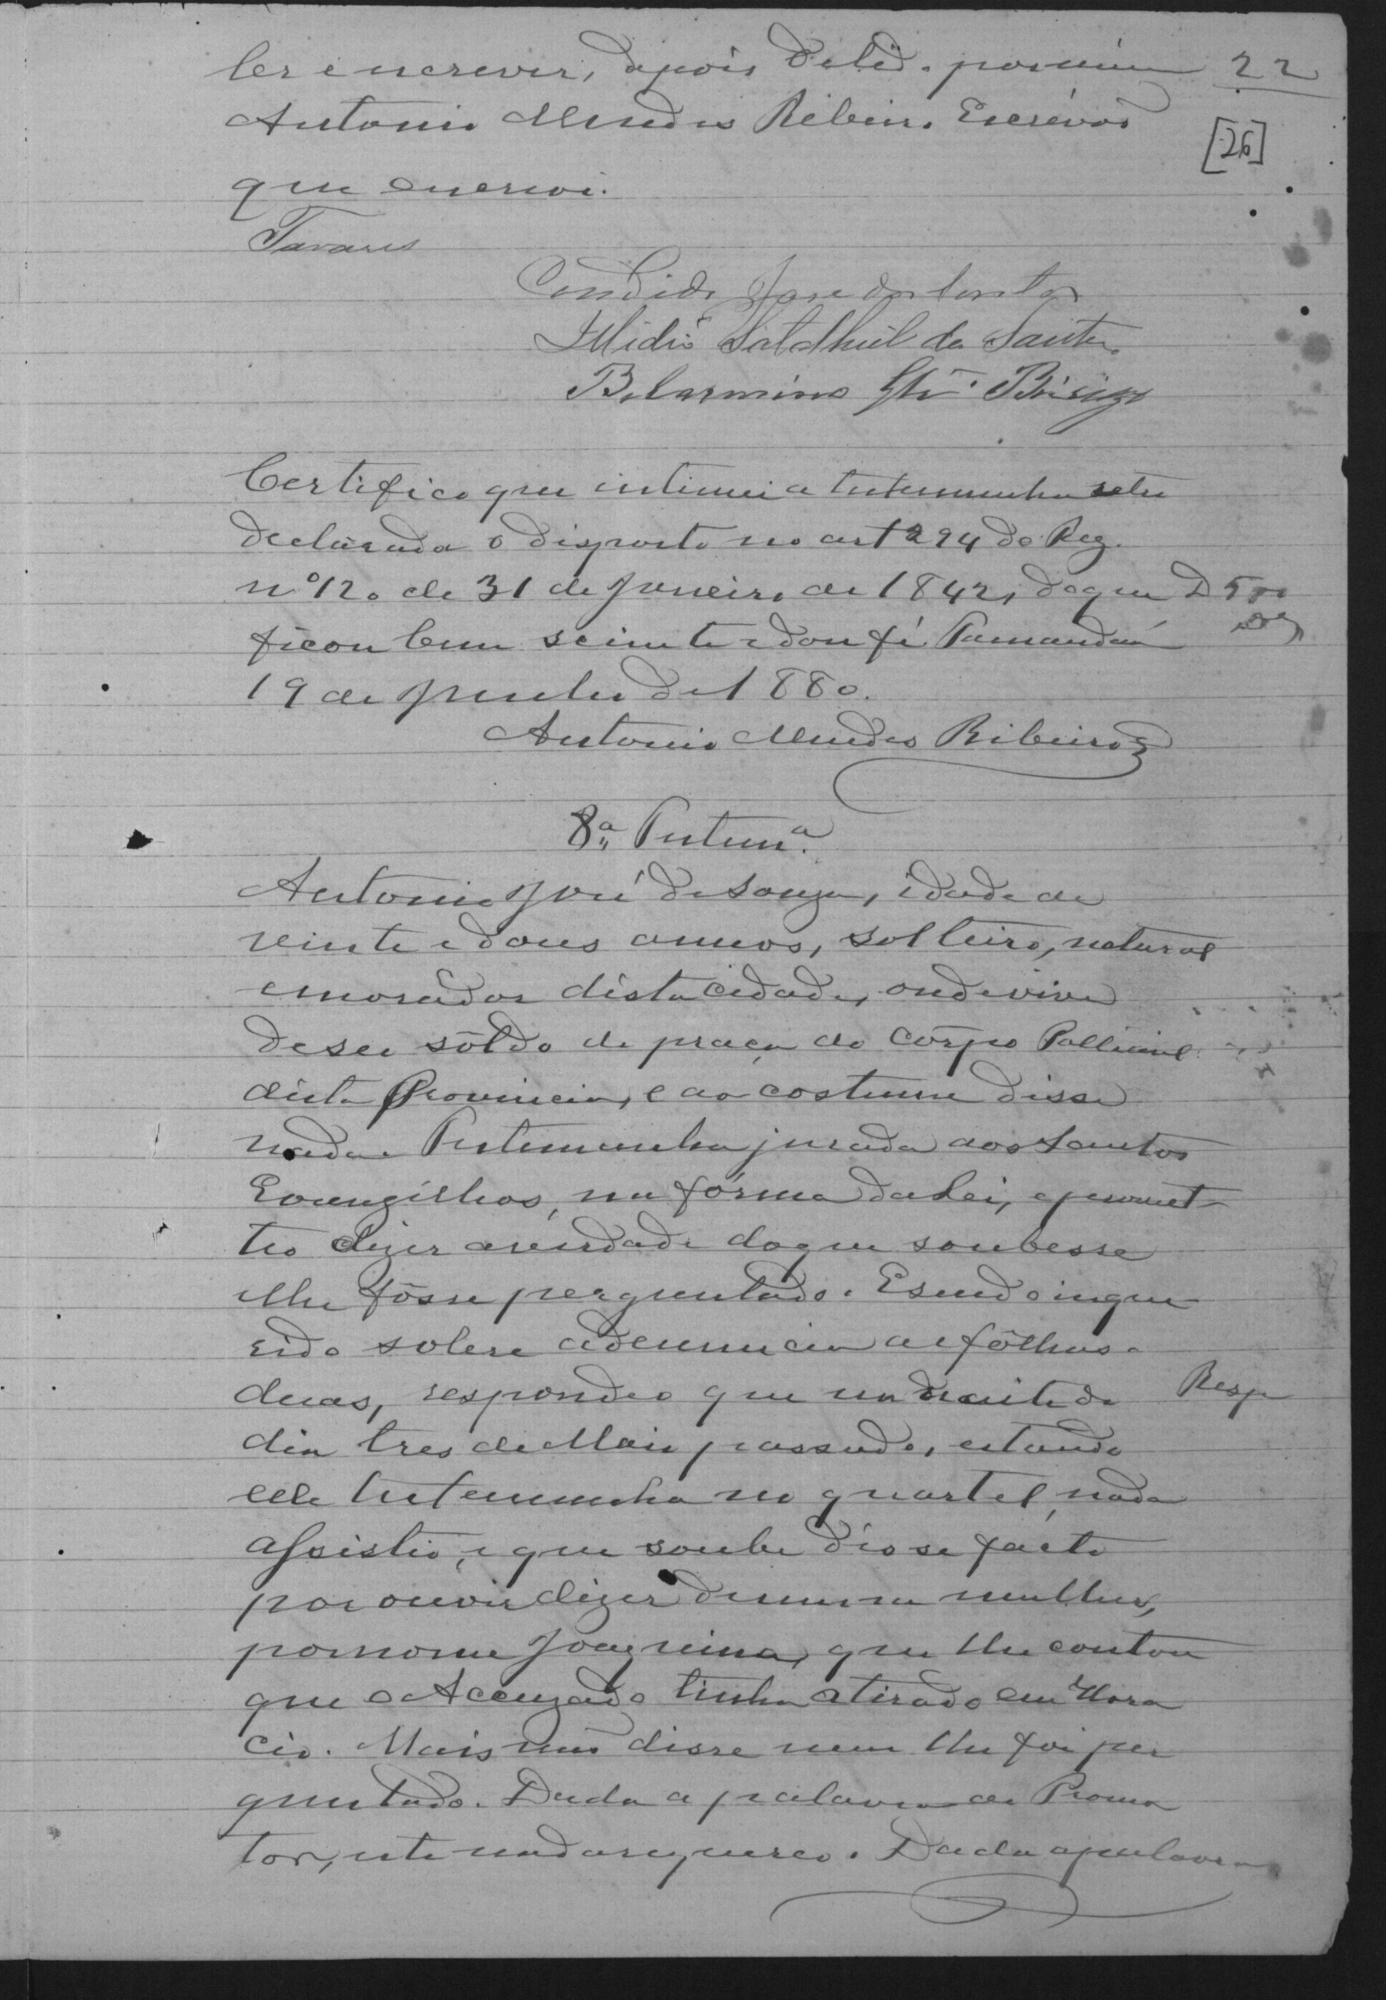 ler e escrever, depois de lido por mim 22
Antonio Mendes Ribeiro Escrivaõ [26]
que escrevi.
Tavares
Candido José dos Santos
Belarmino
Certifico que intimei a testemunha retro
declarada o disposto no art 294 do Reg.
nº 120 de 31 de Janeiro de 1842, do que D 500
ficou bem sciente e dou fé Tamandaré
19 de Junho de 1880.
Antonio Mendes Ribeiro
8ª Testemª
Antonio José de Souza, idade de
vinte e dous annos, solteiro, natural
e morador désta cidade, onde vive
de seu sôldo de praça do Corpo Pollicial
désta Provincia, e ao costume disse
nada. Testemunha jurada aos Santos
Evangélhos, na fórma da Lei, e promet-
teo dizer a verdade do que soubesse
e lhe fôsse perguntado. E sendo inque
rido sobre a denuncia de fôlhas
duas, respondeo que na noite do Resp
dia tres de Maio passado, estando
elle testemunha no quartel, nada
assistio, e que soube disse facto
por ouvir dizer de uma mulher,
por nome Joaquina, que lhe contou
que o Accuzado tinha atirado em Hora
cio. Mais não disse nem lhe foi per
guntado. Dada a palavra ao Promo
tor, este nada requereo. Dada a palavra